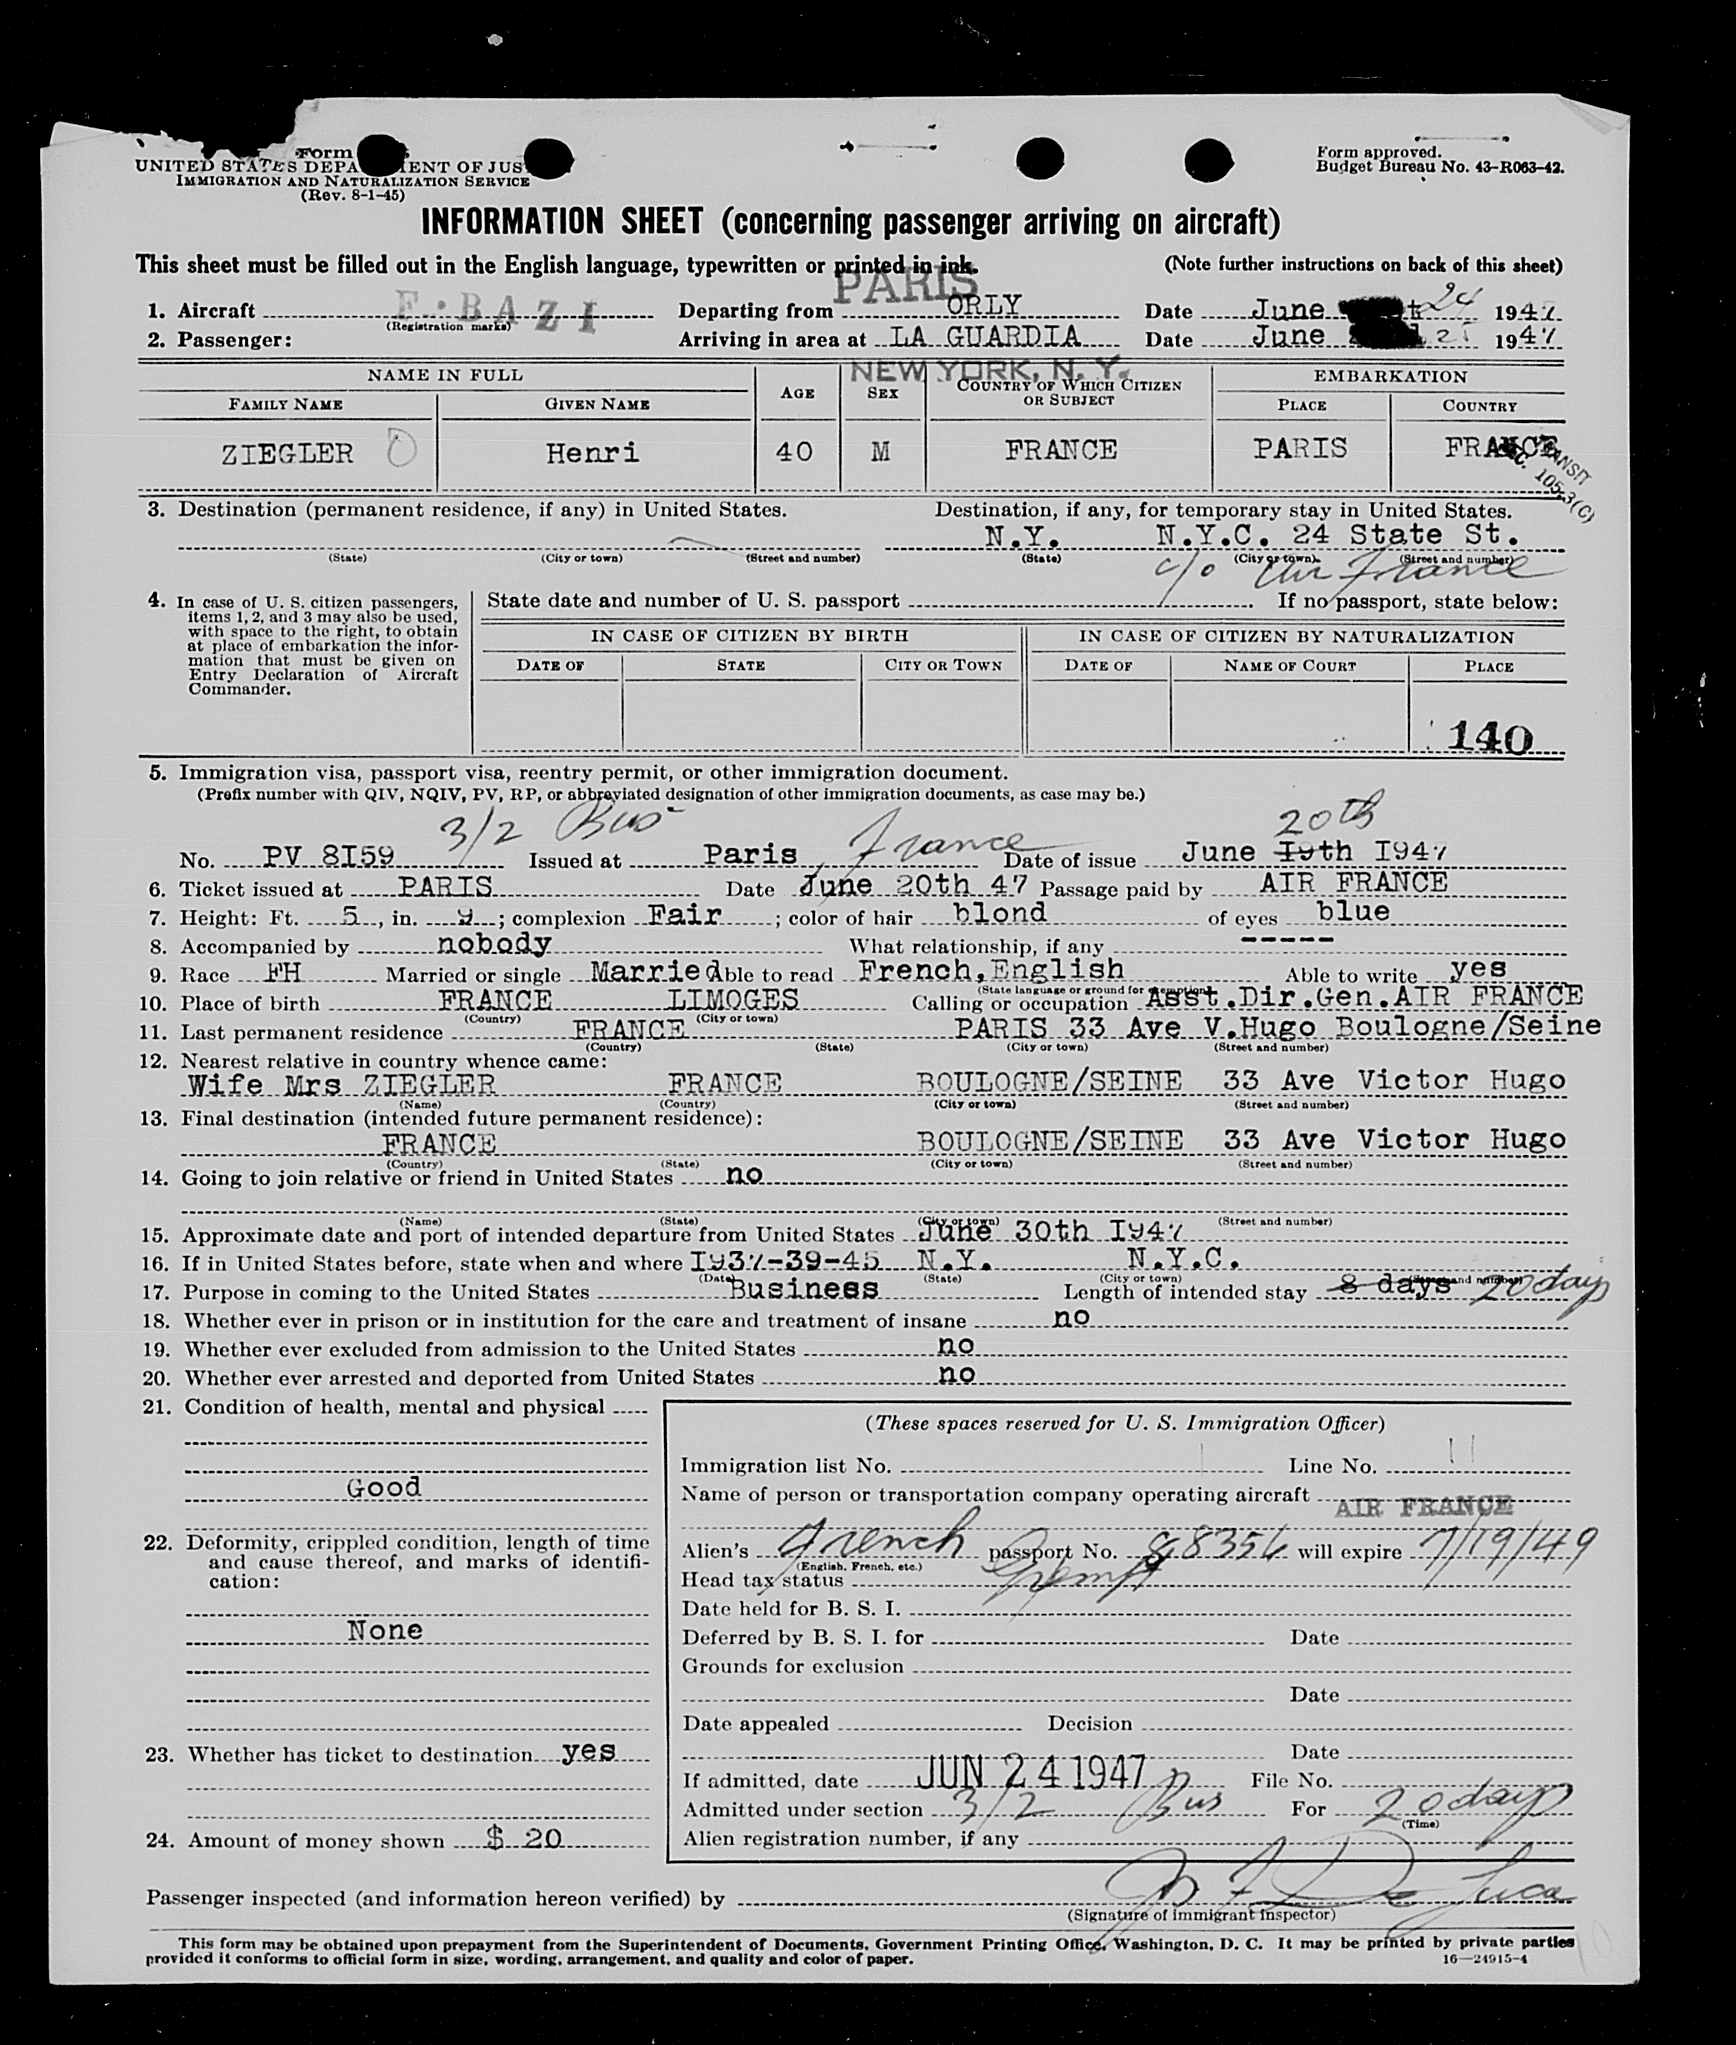 Form
UNITED STATES DEPA MENT OF JUS
IMMIGRATION AND NATURALIZATION SERVICE
(Rev. 8-1-45)
Form approved.
Budget Bureau No. 43-R063-42.
INFORMATION SHEET (concerning passenger arriving on aircraft)
This sheet must be filled out in the English language, typewritten or printed in ink. (Note further instructions on back of this sheet)
PARIS
1. Aircraft F·BAZI Departing from ORLY Date June 24 1947
(Registration marks)
2. Passenger: Arriving in area at LA GUARDIA Date June 1947
NEW YORK, N. Y.
NAME IN FULL AGE SEX COUNTRY OF WHICH CITIZEN OR SUBJECT EMBARKATION
FAMILY NAME GIVEN NAME PLACE COUNTRY
ZIEGLER Henri 40 M FRANCE PARIS FRANCE
TRANSIT
105.3(C)
3. Destination (permanent residence, if any) in United States. Destination, if any, for temporary stay in United States.
N.Y. N.Y.C. 24 State St.
(State) (City or town) (Street and number) (State) (City or town) (Street and number)
c/o Air France
4. In case of U. S. citizen passengers, items 1, 2, and 3 may also be used, with space to the right, to obtain at place of embarkation the information that must be given on Entry Declaration of Aircraft Commander.
State date and number of U. S. passport If no passport, state below:
IN CASE OF CITIZEN BY BIRTH IN CASE OF CITIZEN BY NATURALIZATION
DATE OF STATE CITY OR TOWN DATE OF NAME OF COURT PLACE
140
5. Immigration visa, passport visa, reentry permit, or other immigration document.
(Prefix number with QIV, NQIV, PV, RP, or abbreviated designation of other immigration documents, as case may be.)
3/2 Bus 20th
No. PV 8I59 Issued at Paris, France Date of issue June I9th I947
6. Ticket issued at PARIS Date June 20th 47 Passage paid by AIR FRANCE
7. Height: Ft. 5, in. 9; complexion Fair; color of hair blond of eyes blue
8. Accompanied by nobody What relationship, if any -----
9. Race FH Married or single Married Able to read French,English Able to write yes
(State language or ground for exemption)
10. Place of birth FRANCE LIMOGES Calling or occupation Asst.Dir.Gen.AIR FRANCE
(Country) (City or town)
11. Last permanent residence FRANCE PARIS 33 Ave V.Hugo Boulogne/Seine
(Country) (State) (City or town) (Street and number)
12. Nearest relative in country whence came:
Wife Mrs ZIEGLER FRANCE BOULOGNE/SEINE 33 Ave Victor Hugo
(Name) (Country) (City or town) (Street and number)
13. Final destination (intended future permanent residence):
FRANCE BOULOGNE/SEINE 33 Ave Victor Hugo
(Country) (State) (City or town) (Street and number)
14. Going to join relative or friend in United States no
(Name) (State) (City or town) (Street and number)
15. Approximate date and port of intended departure from United States June 30th I947
16. If in United States before, state when and where I937-39-45 N.Y. N.Y.C.
(Date) (State) (City or town) (Street and number)
17. Purpose in coming to the United States Business Length of intended stay 8 days 20 days
18. Whether ever in prison or in institution for the care and treatment of insane no
19. Whether ever excluded from admission to the United States no
20. Whether ever arrested and deported from United States no
21. Condition of health, mental and physical
Good
22. Deformity, crippled condition, length of time and cause thereof, and marks of identification:
None
23. Whether has ticket to destination yes
24. Amount of money shown $ 20
(These spaces reserved for U. S. Immigration Officer)
Immigration list No. Line No. 11
Name of person or transportation company operating aircraft AIR FRANCE
Alien's French passport No. 88356 will expire 7/19/49
(English, French, etc.)
Head tax status Exempt
Date held for B. S. I.
Deferred by B. S. I. for Date
Grounds for exclusion
Date
Date appealed Decision
Date
If admitted, date JUN 24 1947 File No.
Admitted under section 3/2 Bus For 20 days
(Time)
Alien registration number, if any
Passenger inspected (and information hereon verified) by
(Signature of immigrant inspector)
This form may be obtained upon prepayment from the Superintendent of Documents, Government Printing Office, Washington, D. C. It may be printed by private parties
provided it conforms to official form in size, wording, arrangement, and quality and color of paper. 16—24915-4